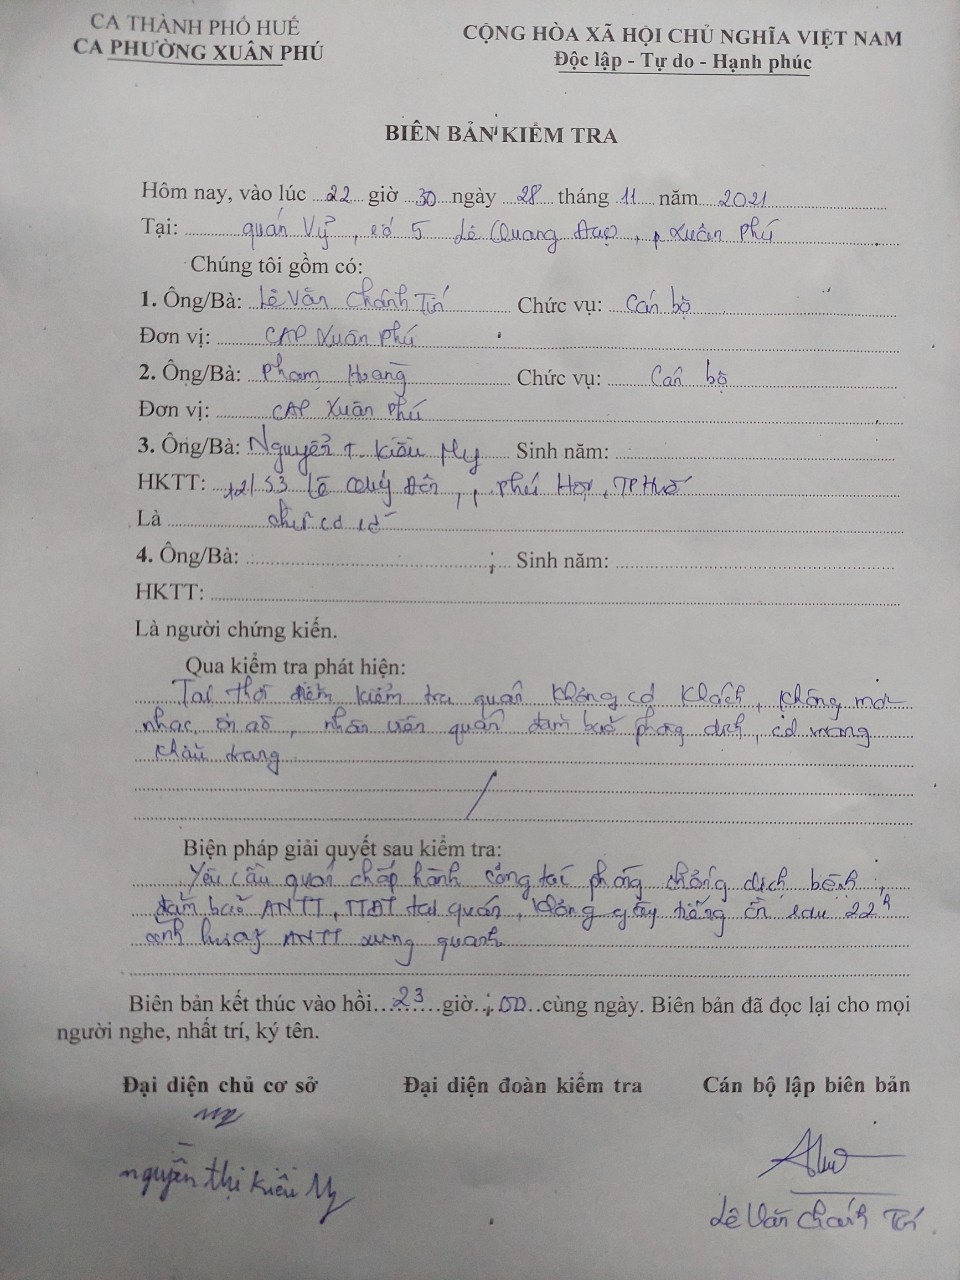 CA THÀNH PHỐ HUẾ
CA PHƯỜNG XUÂN PHÚ
CỘNG HÒA XÃ HỘI CHỦ NGHĨA VIỆT NAM
Độc lập - Tự do - Hạnh phúc
BIÊN BẢN KIỂM TRA
Hôm nay, vào lúc 22 giờ 30 ngày 28 tháng 11 năm 2021
Tại: quán Vỹ, số 5 Lê Quang Đạo, p Xuân Phú
Chúng tôi gồm có:
1. Ông/Bà: Lê Văn Chánh Tín Chức vụ: Cán bộ
Đơn vị: CAP Xuân Phú
2. Ông/Bà: Phạm Hoàng Chức vụ: Cán bộ
Đơn vị: CAP Xuân Phú
3. Ông/Bà: Nguyễn T. Kiều My Sinh năm:
HKTT: 12/53 Lê Quý Đôn, p Phú Hội, TP Huế
Là chủ cơ sở
4. Ông/Bà: Sinh năm:
HKTT:
Là người chứng kiến.
Qua kiểm tra phát hiện:
Tại thời điểm kiểm tra quán không có khách, không mở
nhạc, ồn ào, nhân viên quán đảm bảo phòng dịch, có mang
khẩu trang
Biện pháp giải quyết sau kiểm tra:
Yêu cầu quán chấp hành công tác phòng chống dịch bệnh,
đảm bảo ANTT, TTĐT tại quán, không gây tiếng ồn sau 22h
ảnh hưởng ANTT xung quanh
Biên bản kết thúc vào hồi 23 giờ 00 cùng ngày. Biên bản đã đọc lại cho mọi
người nghe, nhất trí, ký tên.
Đại diện chủ cơ sở Đại diện đoàn kiểm tra Cán bộ lập biên bản
My
Nguyễn Thị Kiều My
Lê Văn Chánh Tín